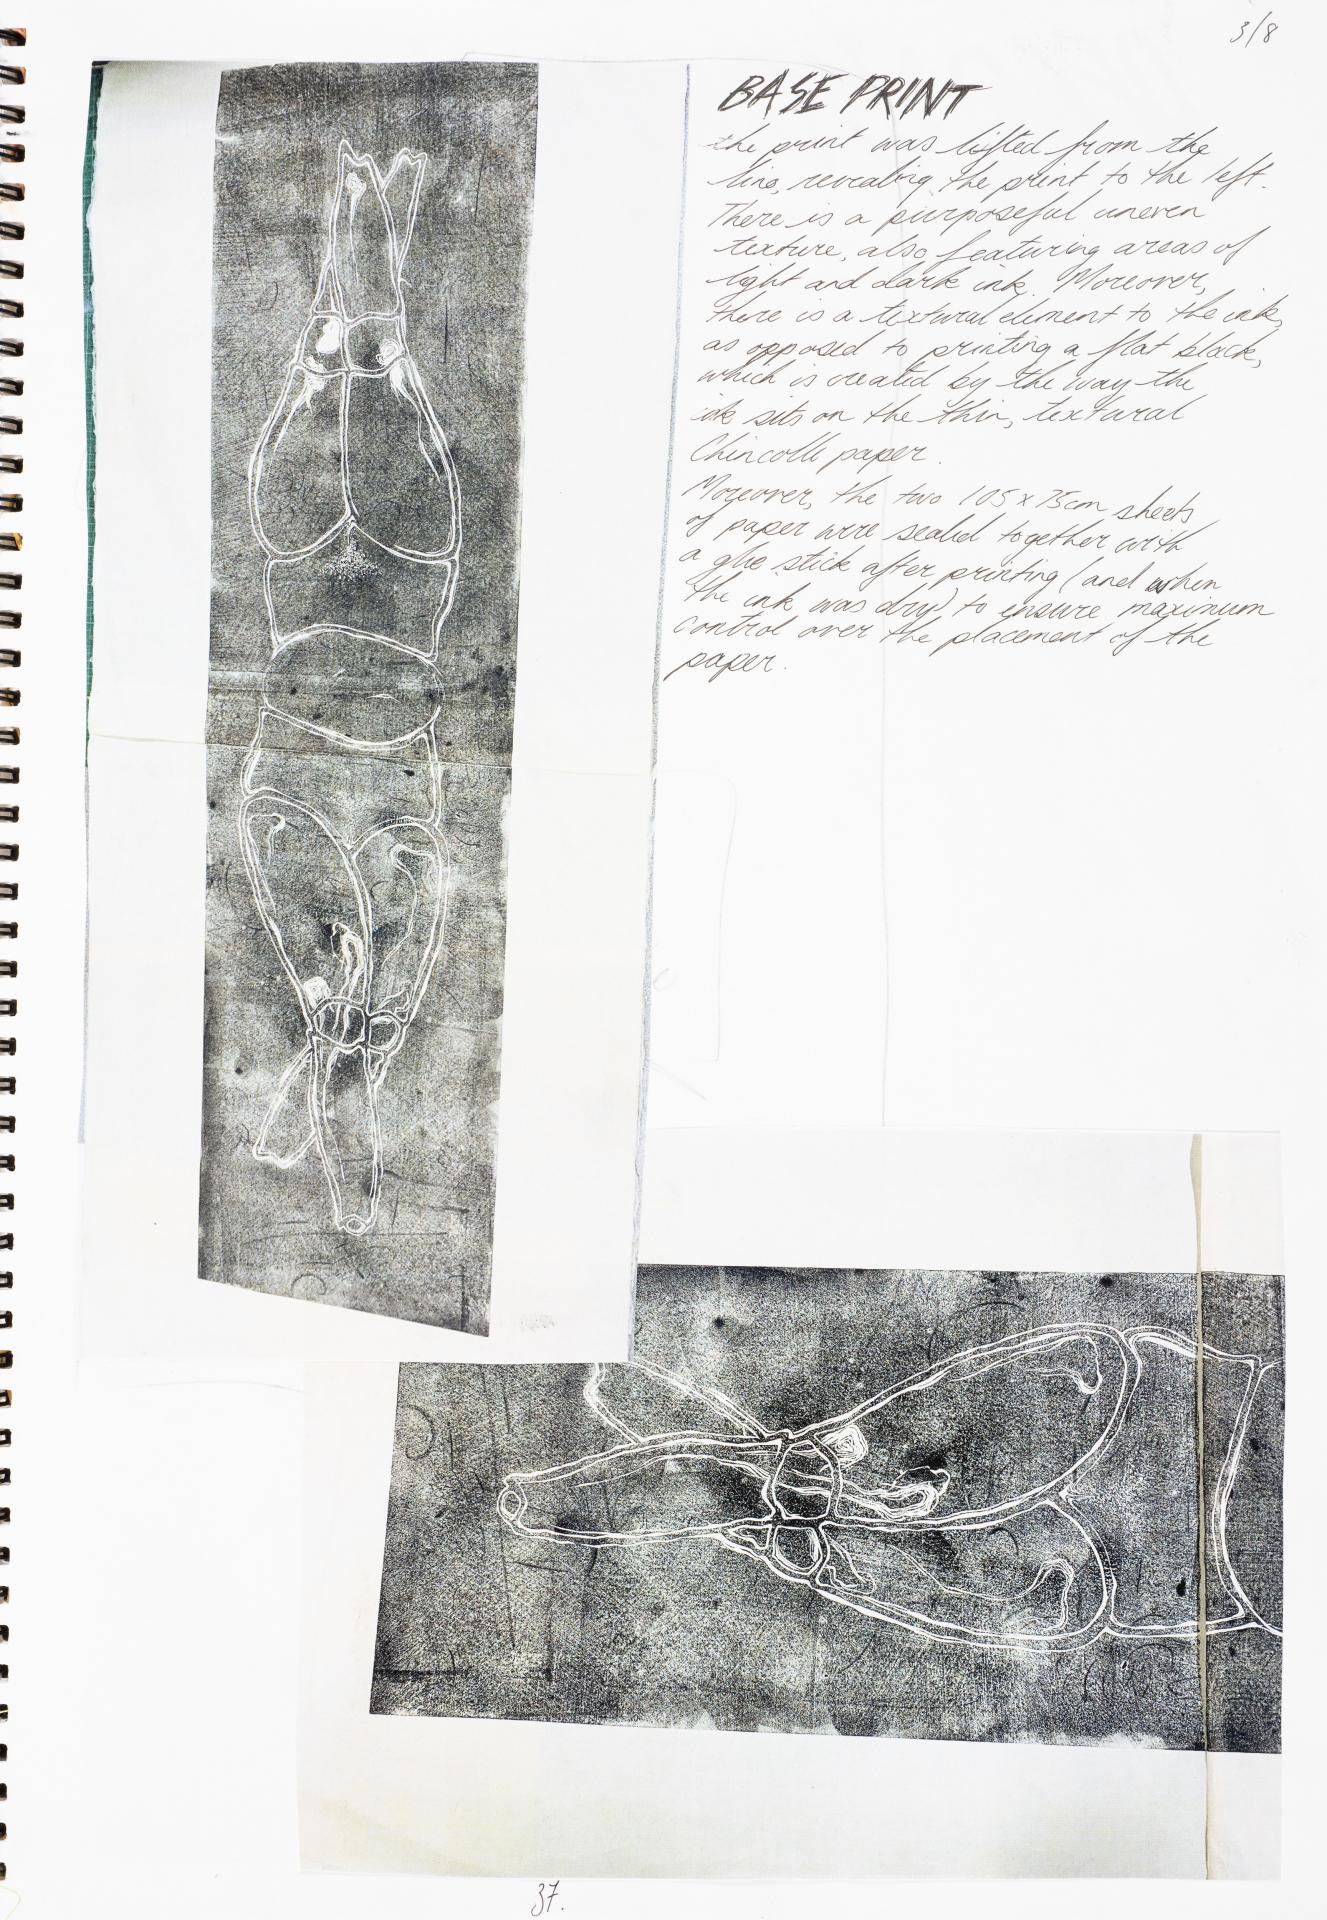 3/8
BASE PRINT
the print was lifted from the
lino, revealing the print to the left.
There is a purposeful uneven
texture, also featuring areas of
light and dark ink. Moreover,
there is a textural element to the ink,
as opposed to printing a flat black,
which is created by the way the
ink sits on the thin, textural
Chincolle paper.
Moreover, the two 105 x 75cm sheets
of paper were sealed together with
a glue stick after printing (and when
the ink was dry) to ensure maximum
control over the placement of the
paper.
37.